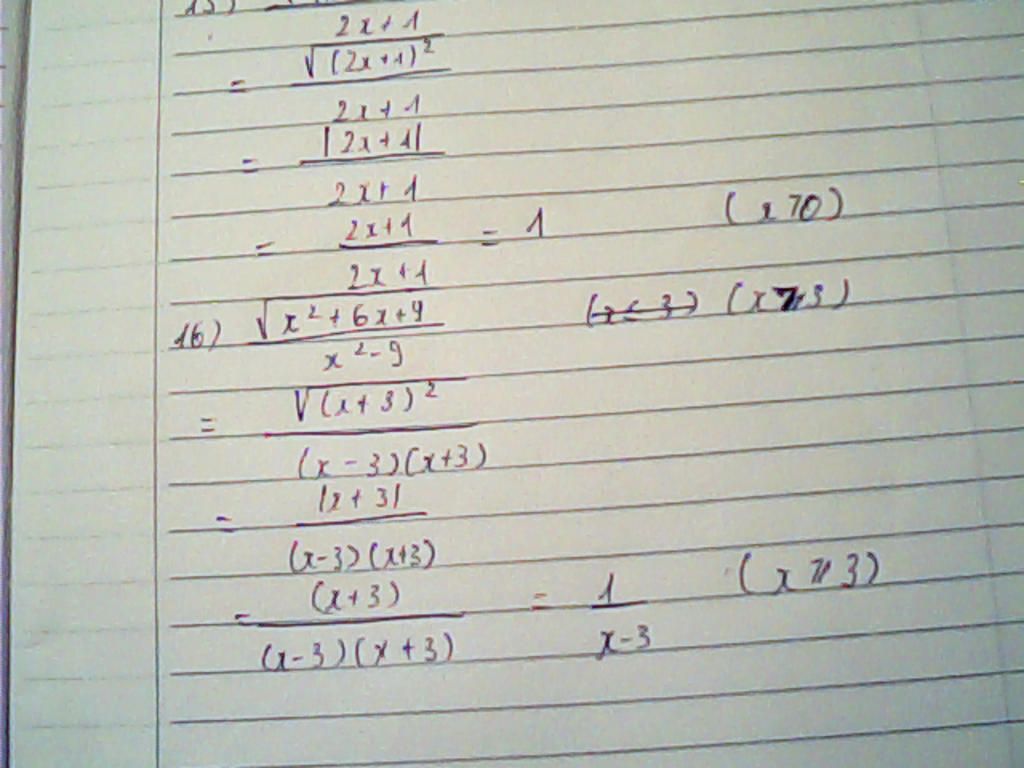 15)
2x+1
= √(2x+1)²
2x+1
= |2x+1|
2x+1
= 2x+1 = 1 (x>0)
2x+1
16) √x²+6x+9 (x≤3) (x≥3)
x²-9
= √(x+3)²
(x-3)(x+3)
= |x+3|
(x-3)(x+3)
= (x+3) = 1 (x≥3)
(x-3)(x+3) x-3